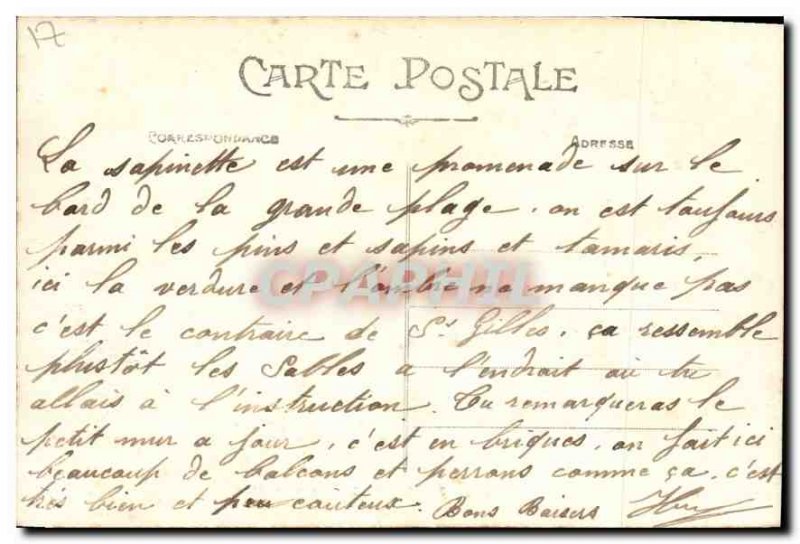 17
CARTE POSTALE
CORRESPONDANCE ADRESSE
La sapinette est une promenade sur le
bord de la grande plage. on est toujours
parmi les pins et sapins et tamaris,
ici la verdure et l'ombre ne manque pas
c'est le contraire de St Gilles. ça ressemble
plustôt les Sables a l'endroit où tu
allais à l'instruction. Tu remarqueras le
petit mur a jour, c'est en briques, on fait ici
beaucoup de balcons et perrons comme ça. c'est
très bien et peu couteux. Bons Baisers
CPAPHIL